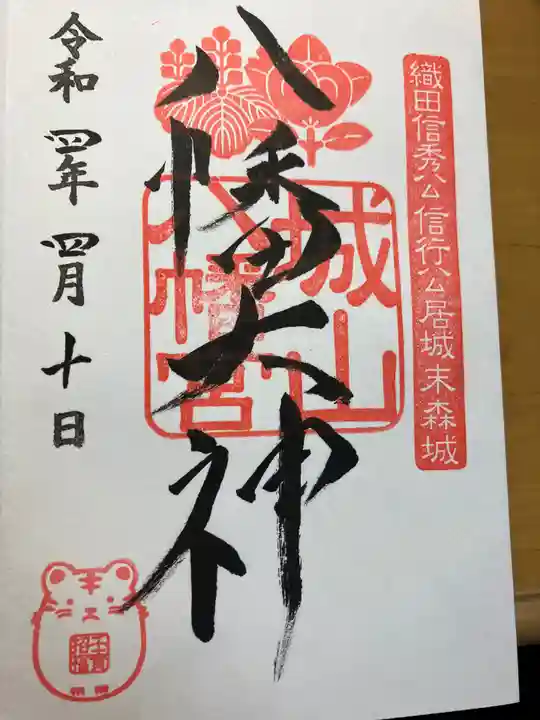 織田信秀公信行公居城末森城
八幡大神
城山
八幡宮
令和四年四月十日